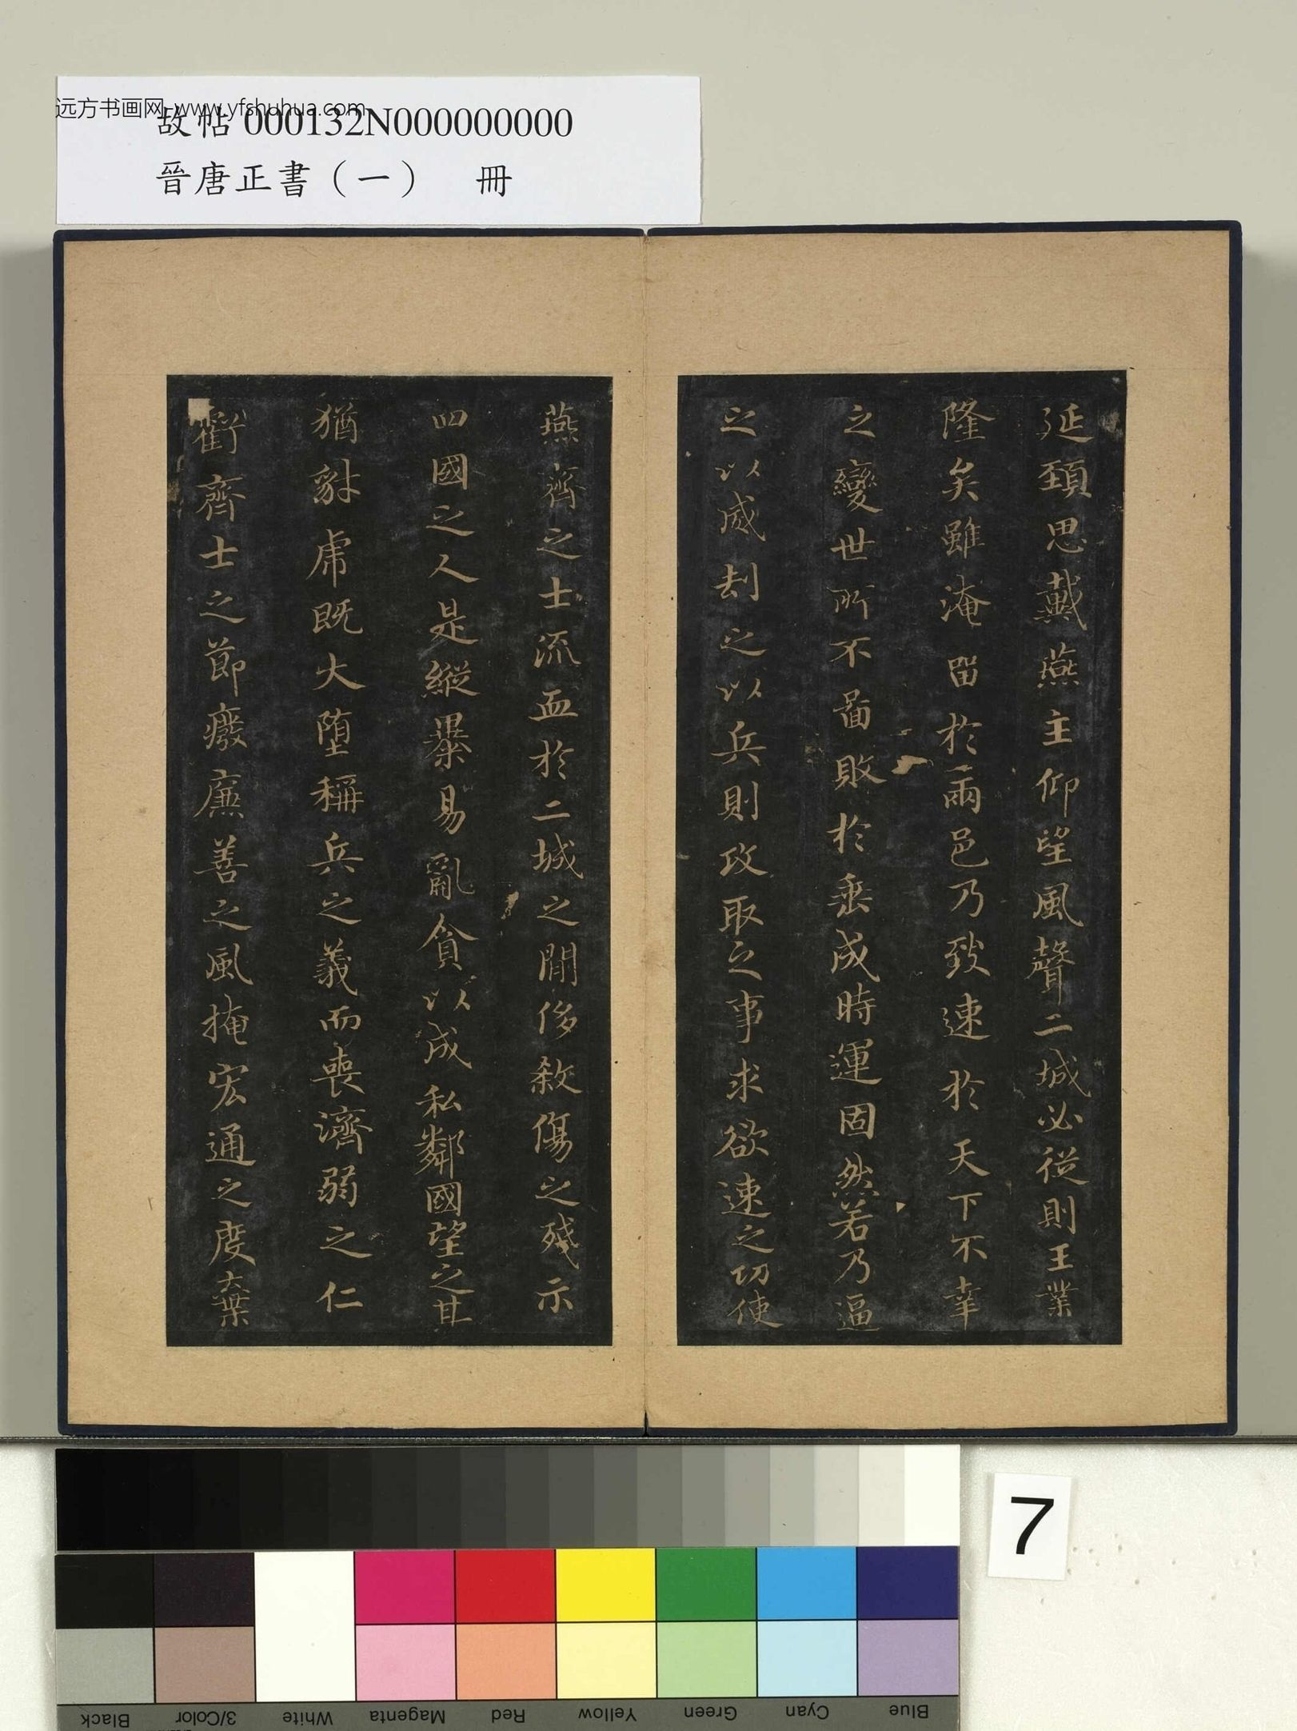 远方书画网 www.yfshuhua.com
故帖 000132N000000000
晉唐正書（一） 冊
延頸思戴燕主仰望風聲二城必從則王業
隆矣雖淹留於兩邑乃致速於天下不幸
之變世所不啚敗於垂成時運固然若乃逼
之以威刧之以兵則攻取之事求欲速之功使
燕齊之士流血於二城之閒侈敘傷之殘示
四國之人是縱㬥易亂貪以成私鄰國望之其
猶豺虎既大墮稱兵之義而喪濟弱之仁
虧齊士之節癈廉善之風掩宏通之度棄
7
Black
3/Color
White
Magenta
Red
Yellow
Green
Cyan
Blue